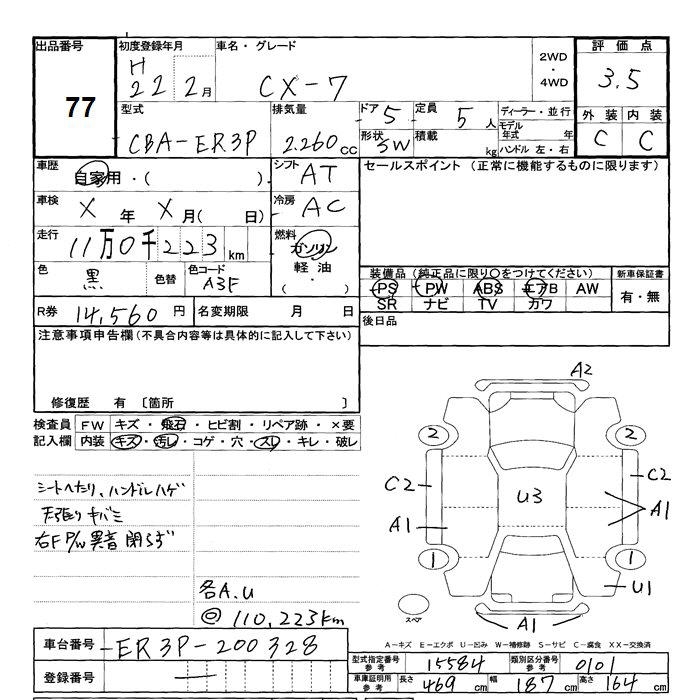 出品番号
77
初度登録年月
H
22 2月
車名・グレード
CX-7
2WD
・
4WD
評価点
3.5
型式
CBA-ER3P
排気量
2.260cc
ドア 5
形状 5W
定員 5人
積載 kg
ディーラー・並行
モデル年式 年
ハンドル 左・右
外装 内装
C C
車歴
自家用・( )
シフト AT
セールスポイント (正常に機能するものに限ります)
車検
X 年 X 月( 日)
冷房 AC
走行
11万0千223km
燃料
ガソリン
軽油
・( )
色
黒
色替
色コード
A3F
装備品 (純正品に限り○をつけてください)
新車保証書
PS PW ABS エアB AW
SR ナビ TV カワ
有・無
R券 14,560円
名変期限 月 日
後日品
注意事項申告欄(不具合内容等は具体的に記入して下さい)
修復歴 有 〔箇所 〕
検査員 FW キズ・飛石・ヒビ割・リペア跡・×要
記入欄 内装 キズ・汚レ・コゲ・穴・スレ・キレ・破レ
シートヘたり、ハンドルハゲ
天張りキバミ
右F P/W異音
各A.U
◎ 110,223km
A2
2 2
C2 C2
U3
A1 A1
1 1
U1
スペア
A1
A-キズ E-エクボ U-凹み W-補修跡 S-サビ C-腐食 XX-交換済
車台番号 ER3P-200328
型式指定番号
参考
15584
類別区分番号
参考
0101
登録番号 —
車庫証明用
参考
長さ 469cm 幅 187cm 高さ 164cm